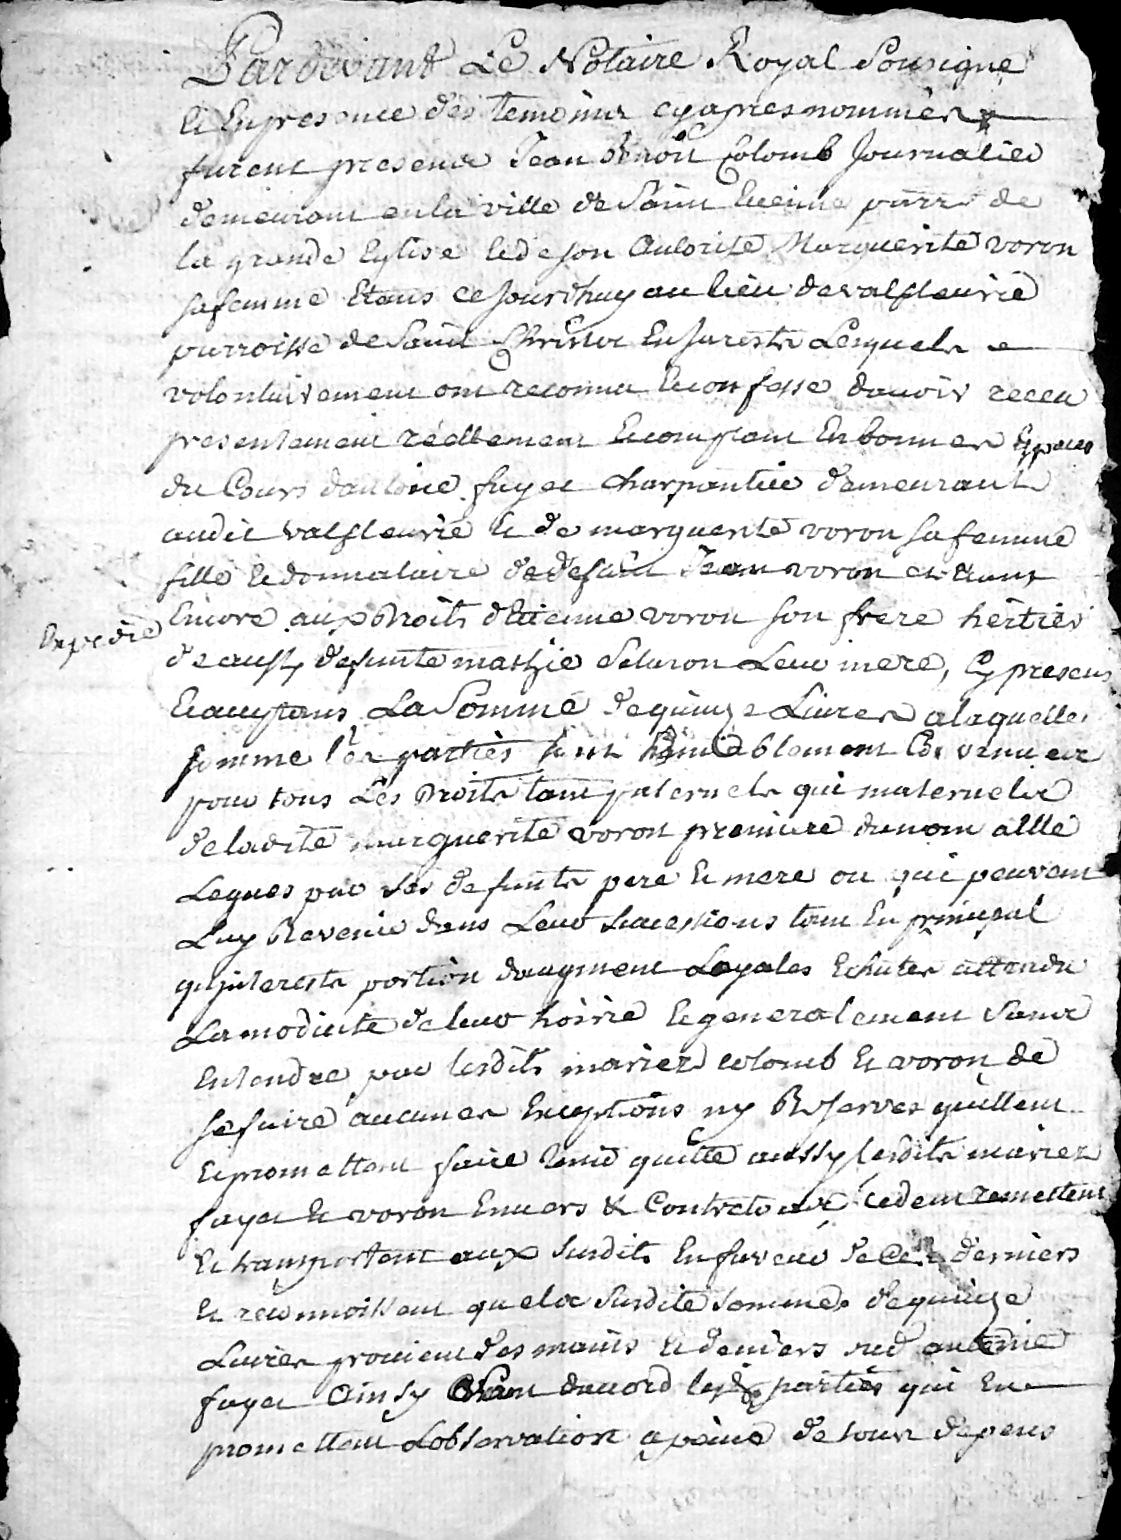 Pardevant Le Notaire Royal Sousigné
et En presence des temoins cy apres nommés
furent presens Jean Benoit Colomb Journalier
demeurant en la ville de Saint Etienne parr. de
la grande Eglise et de son autorité Marguerite voron
sa femme Etans ce Jourdhuy au lieu de valfleurie
parroisse de Saint Christot En Jarests Lesquels
volontairement ont reconnu et confesse davoir receu
presentement réellement et comptant En bonnes Especes
du Cours dantoine fayet charpentier demeurant
audit valfleurie et de marguerite voron sa femme
fille et donnataire de defunt Jean voron et etant
Encore aux Droits dEtienne voron son frere heritier
de aussy defunte mathie Leur mere, Cy presens
Et acceptans La Somme de quinze Livres a laquelle
somme les parties sont Convenues
pour tous Les Droits tant paternels que maternels
de ladite marguerite voron premiere du nom a Elle
Legues par ses defunts pere et mere ou qui peuvent
Luy Revenir dans Leur successions tant En principal
qu'interests portion daugment Legales Echutes attendu
La modicité de leur hoirie et generalement sans
Entendre par lesdits mariez colomb et voron de
se faire aucunes Exceptions ny Reserves quittent
et promettent faire tenir quitte aussy lesdits mariez
fayet et voron Envers & Contre tous cedent remettent
et transportent aux susdits En faveur de Ces derniers
et reconnoissent que la susdite somme de quinze
Livres provient des mains et deniers dud antoine
fayet Ainsy daccord lesd parties qui En
promettent Lobservation a peine de tous depens
Expedié